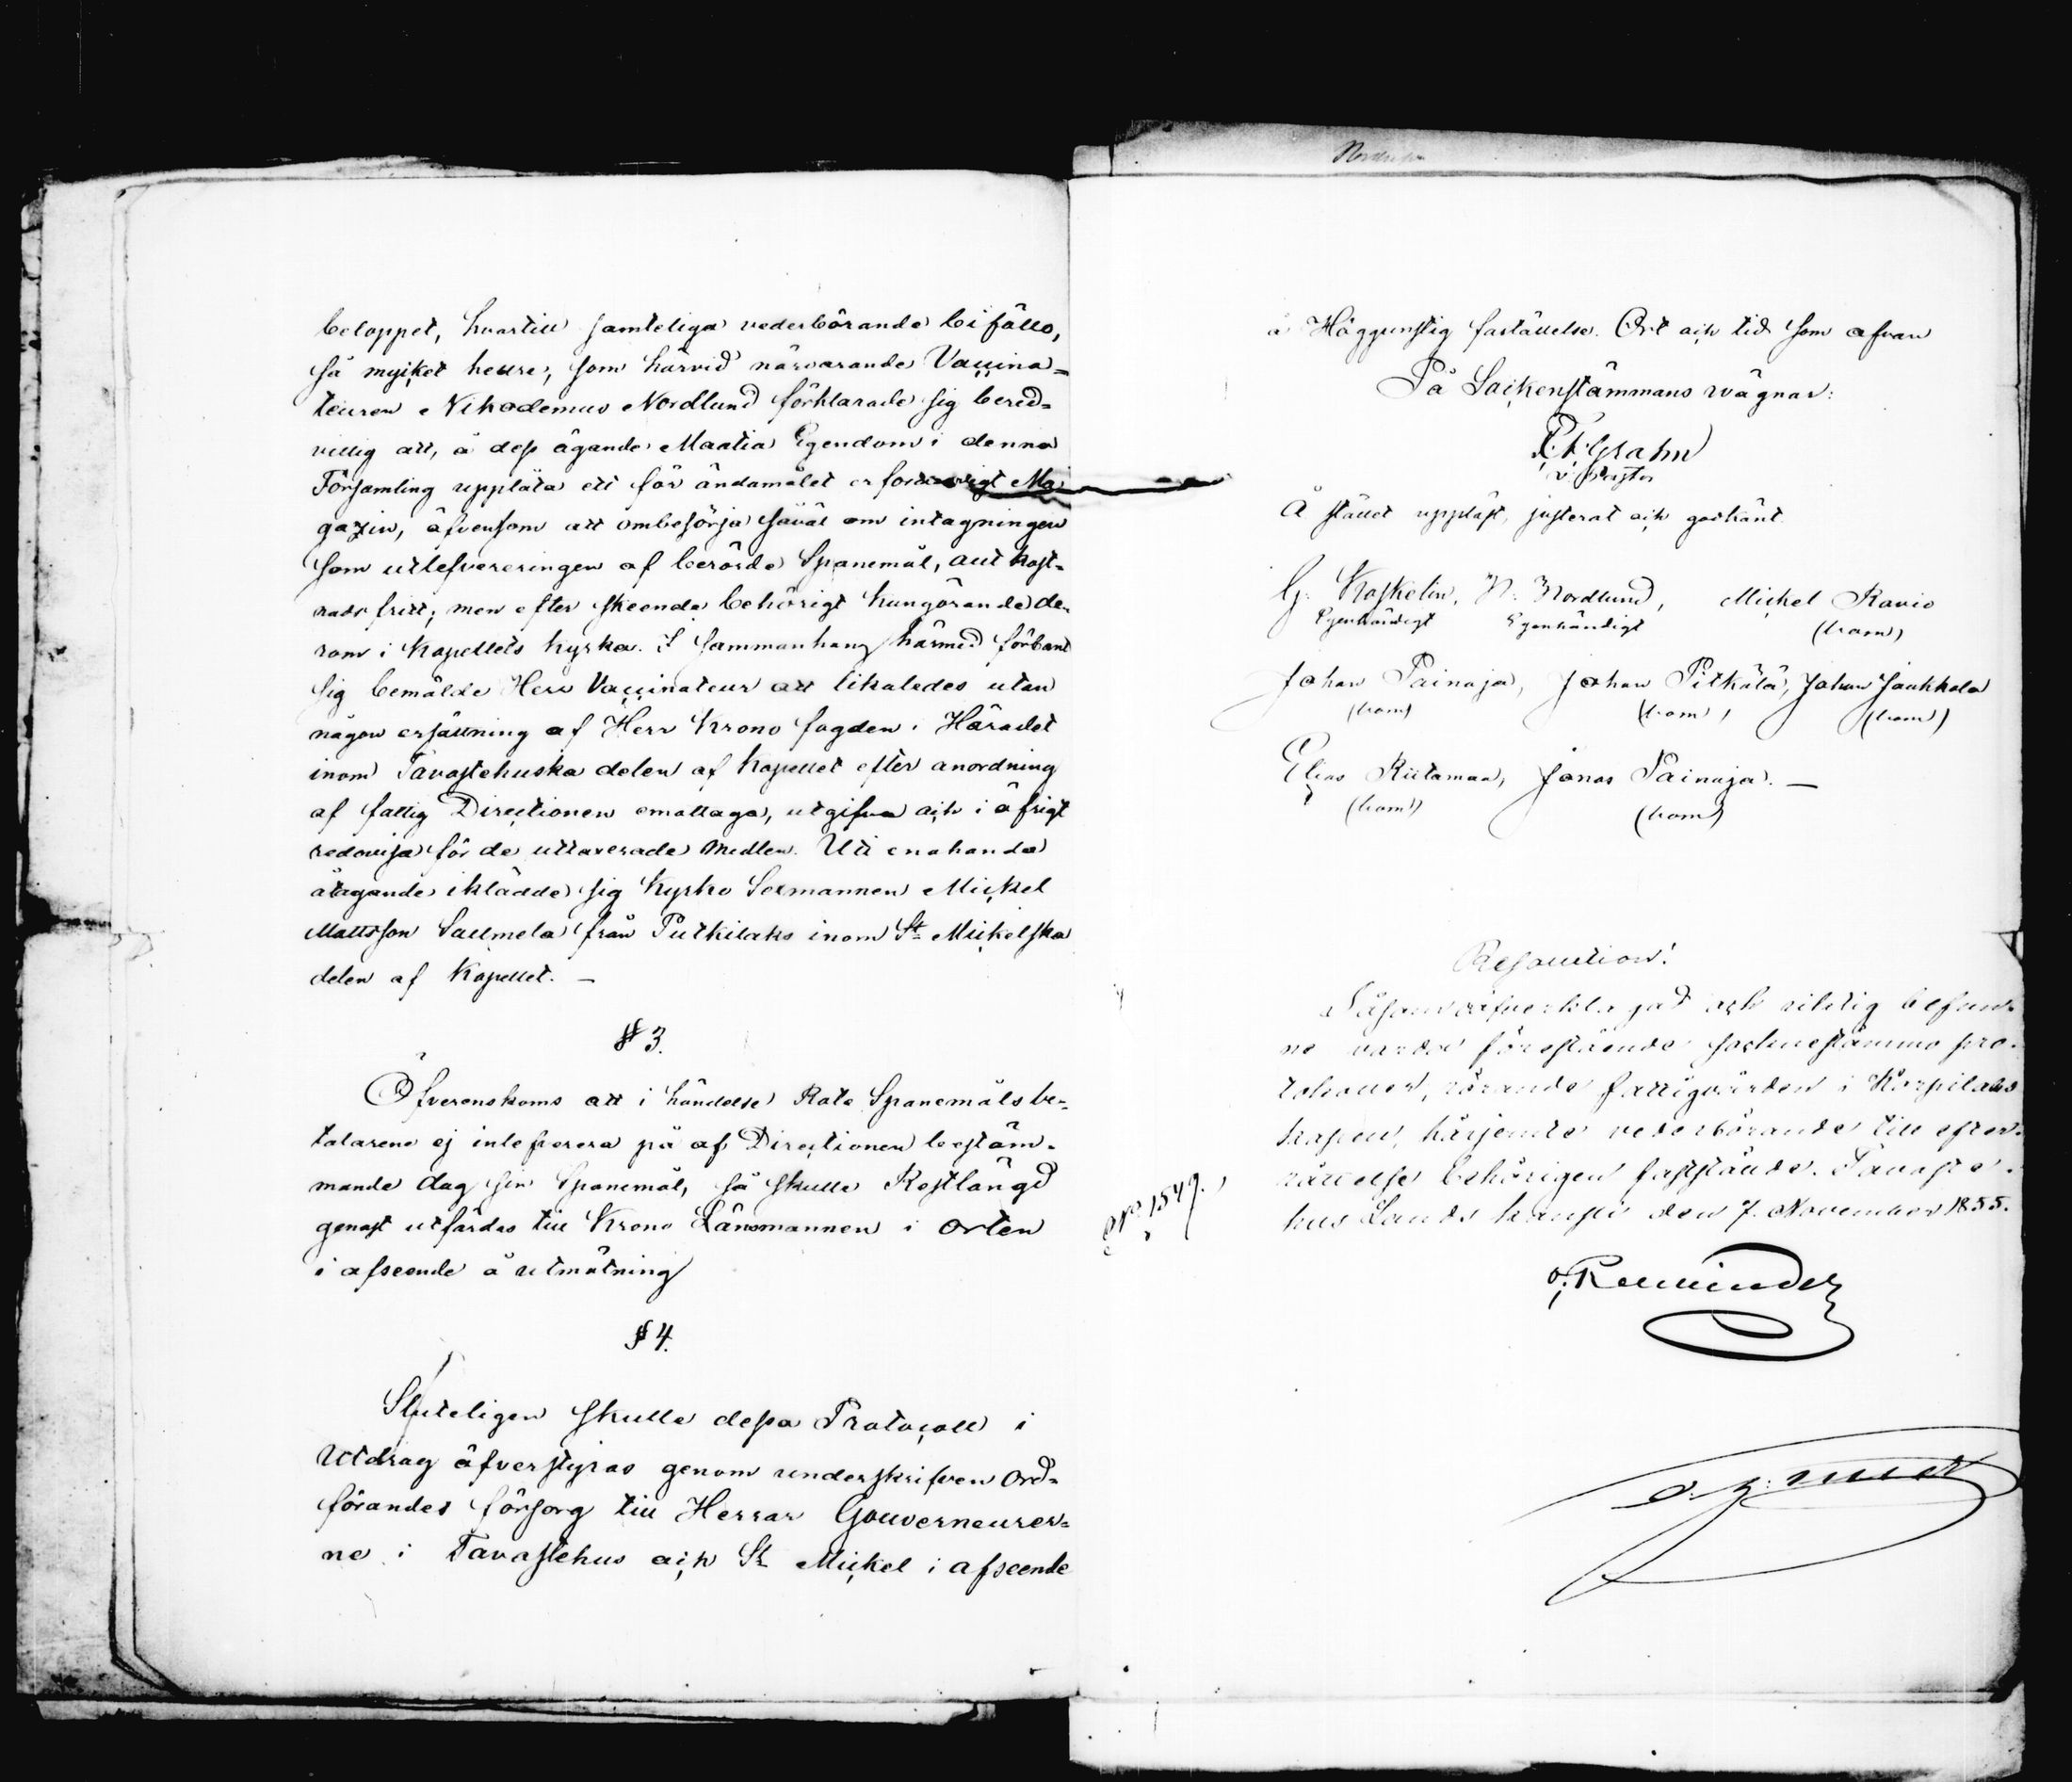 beloppet, hvartill samteliga vederbörande biföllo,
så mycket heldre, som härvid närvarande Vaccina=
teuren Nikodemus Nordlund förklarade sig bered=
villig att, å dess ägande Maatia Egendom i denna
Församling upplåta ett för ändamålet erforderligt Ma
gazin, äfvensom att ombesörja såväl om intagningen
som utlefvereringen af berörde Spanemål, allt kost-
nads fritt; men efter skeende behörigt kungörande de-
rom i Kapellets kyrka. I sammanhang härmed förband
sig bemälde Herr Vaccinateur att likaledes utan
någon ersättning af Herr Krono fogden i Häradet
inom Tavastehuska delen af Kapellet efter anordning
af fattig Directionen emottaga, utgifva och i öfrigt
redovisa för de uttaxerade medlen. Uti enahanda
åtagande iklädde sig Kyrko Sexmannen Mickel
Mattsson Saumela från Putkilaks inom St Mickelska
delen af Kapellet. —
§ 3.
Öfverenskoms att i händelse Rote Spanemåls be=
talarene ej inleferera på af Directionen bestäm-
mande dag sin Spanemål, så skulle Restlängd
genast utfärdas till Krono Länsmannen i Orten
i afseende å utmätning
§ 4.
Sluteligen skulle dessa Protocoll i
Utdrag öfverstyras genom underskrifven Ord=
förandes försorg till Herrar Gouverneurer=
ne i Tavastehus och St Mickel i afseende
å Höggunstig fastställelse. Ort och tid som ofvan
På Sockenstämmans vägnar:
Grahn
v. Pastor
Å stället uppläst, justerat och godkänt.
G. Koskelin, N. Nordlund, Mickel Ravio
Egenhändigt Egenhändigt (bom)
Johan Painaja, Johan Pitkälä, Johan Jaukkola
(bom) (bom) (bom)
Elias Riitamaa, Jonas Painaja. —
(bom) (bom)
Resolution!
Såsom oöfverklagad och riktig befun-
ne varder förestående sockenstämmo pro-
tokoller, rörande fattigvården i Korpilaks
kapell, härjemte vederbörande till efter-
rättelse behörigen fastställde. Tavaste-
hus Lands kansli den 7. November 1855.
No 1549.